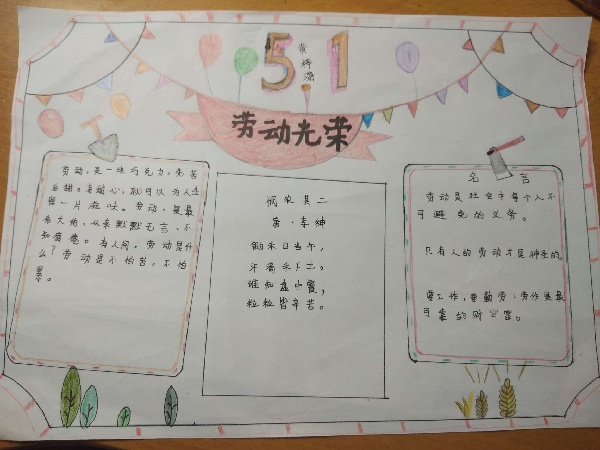 5.1
黄梓潇
劳动光荣
劳动,是一块巧克力,先苦
后甜。真诚心,就可以为人生
留一片滋味。劳动,是最
季大痛,从来默默无言、不
知疲卷。有人问,劳动是什
么?劳动是不怕苦,不怕
累。
悯农其二
唐·李绅
锄禾日当午,
汗滴禾下土。
谁知盘中餐,
粒粒皆辛苦。
名言
劳动是社会中每个人不
可避免的义务。
只有人的劳动才是神圣的。
要工作,要勤劳:劳作是最
可靠的财富。